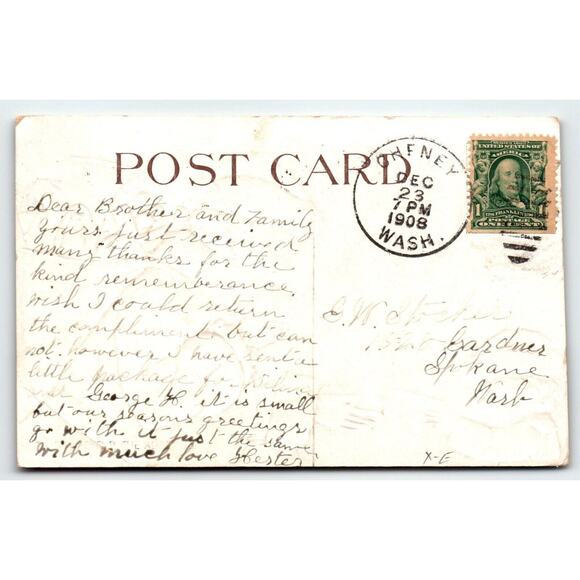 POST CARD
CHENEY
DEC
23
7 PM
1908
WASH.
UNITED STATES OF
AMERICA
1
FRANKLIN
POSTAGE
ONE CENT
Dear Brother and Family
Yours just received
many thanks for the
kind rememberance.
wish I could return
the compliment but can
not. however I have sent a
little package for
George H. it is small
but our seasons greetings
go with it just the same
with much love Hester
E. W. Stocker
Gardner
Spokane
Wash
X-E